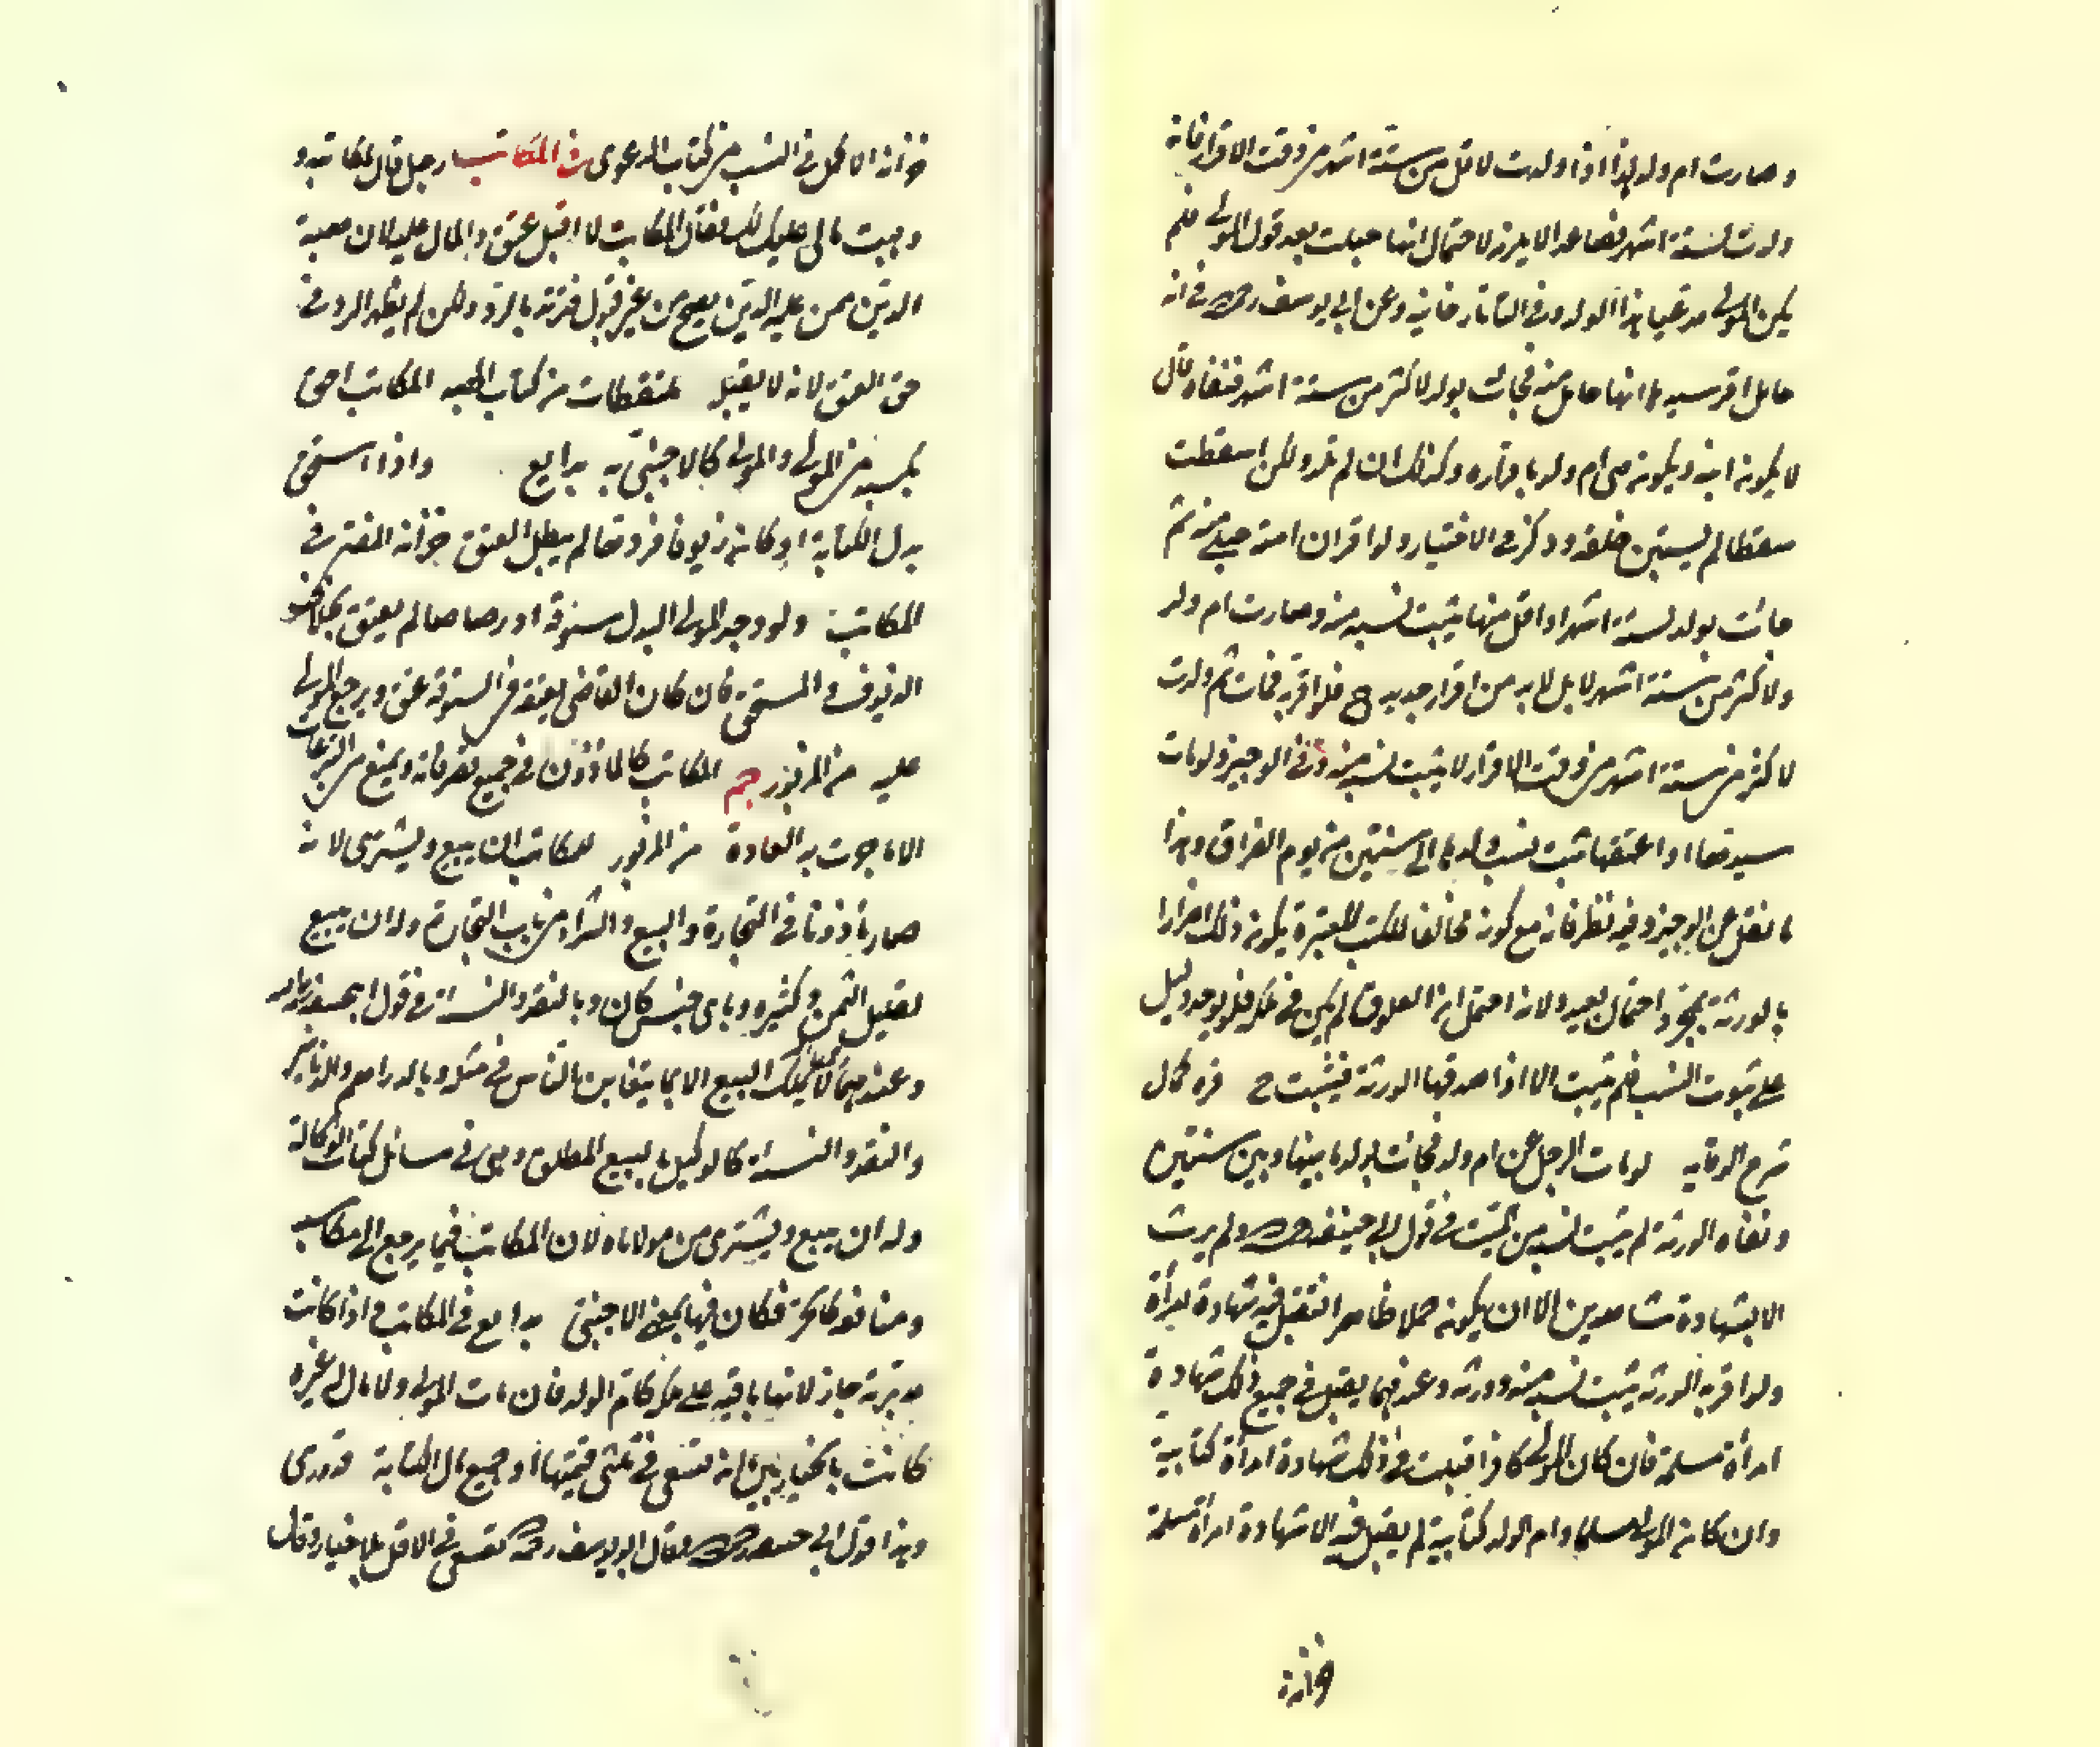 وصارت ام ولد لهذا اذا ولدت لاقل من ستة اشهر من وقت الاقرار فانه
ولدت لستة اشهر فصاعدا لا يلزم لاحتمال انها حبلت بعد قول المولى فلم
يكن المولى مدعيا هذا الولد وفي التاتارخانية وعن ابي يوسف رحمه الله في انه
حامل اقر سيدها انها حامل منه فجائت بولد لاكثر من ستة اشهر فنفاه قال
لا يكون ابنه ويكون هي ام ولد باقراره وكذلك ان لم تلد ولكن اسقطت
سقطا لم يستبن خلقه وذكر في الاختيار ولو اقر ان امته حبلى منه ثم
جائت بولد لستة اشهر او اقل منها يثبت نسبه منه وصارت ام ولد
ولاكثر من ستة اشهر لا بل لا بد من اقرار جديد فلو اقر به فمات ثم ولدت
لاكثر من ستة اشهر من وقت الاقرار لا يثبت نسبه منه وفي الوجيز ولو مات
سيدها او اعتقها ثبت نسب ولدها الى سنتين من يوم الفراق وهذا
ما نقل عن الوجيز وفيه نظر فانه مع كونه مخالفا للكتب المعتبرة يكون ذلك اضرارا
بالورثة بمجرد احتمال بعيد ولانه احتمل ان العلوق لم يكن في ملكه فلم يوجد دليل
على ثبوت النسب فلم يثبت الا اذا صدقها الورثة فيثبت ح قره كمال
شرح الوقايه لو مات الرجل عن ام ولد فجائت بولد ما بينها وبين سنتين
ونفاه الورثة لم يثبت نسبه من الميت في قول ابي حنيفه رحمه الله ولم يرث
الا بشهادة شاهدين الا ان يكون حملا ظاهرا فتقبل فيه شهادة امرأة
ولو اقر به الورثه يثبت نسبه منه وورثه وعندهما يقبل في جميع ذلك شهادة
امرأة مسلمة فان كان المولى كافرا قبلت في ذلك شهادة امرأة كتابية
وان كان المولى مسلما وام الولد كتابية لم يقبل فيه الا شهادة امرأة مسلمة
خزانة
خزانة الاكمل في النسب من كتاب الدعوى في المكاتب رجل قال لمكاتبه و
وهبت مالي عليك لك فقال المكاتب لا اقبل عتق والمال عليه لان هبة
الدين ممن عليه الدين يصح من غير قبول فترتد بالرد ولكن لم يظهر الرد في
حق العتق لانه لا يقبل ملتقطات من كتاب الهبه المكاتب احق
بكسبه من المولى والمولى كالاجنبي به بدايع واذا استحق
بدل الكتابة او كانت زيوفا فردها لم يبطل العتق خزانة المفتين في
المكاتب ولو وجد المولى البدل ستوقة او رصاصا لم يعتق بخلاف
الزيوف والمستحق فان كان القاضي يعتقه في الستوقة عتق ويرجع المولى
عليه من المزبور المكاتب كالماذون في جميع تصرفاته ويمنع من التبرعات
الا ما جرت به العادة من المزبور للمكاتب ان يبيع ويشترى لانه
صار ماذونا في التجارة والبيع والشراء من باب التجارة وله ان يبيع
بقليل الثمن وكثيره وباى جنس كان وبالنقد والنسيئة في قول ابي حنيفة رحمه الله
وعندهما لا يملك البيع الا بما يتغابن الناس في مثله وبالدراهم والدنانير
والنقد والنسيئة كالوكيل بالبيع المطلق وهي في مسائل كتاب الوكالة
وله ان يبيع ويشترى من مولاه لان المكاتب فيما يرجع الى مكاسبه
ومنافعه كالحر فكان فيها بمنزلة الاجنبي بدايع في المكاتب اذا كاتب
مدبرته جاز لانها باقية على ملكه كام الولد فان مات المولى ولا مال له غيره
كانت بالخيار بين ان تسعى في ثلثي قيمتها او جميع مال الكتابة قدورى
وهذا قول ابي حنيفه رحمه الله وقال ابو يوسف رحمه تسعى في الاقل بلا خيار وقال